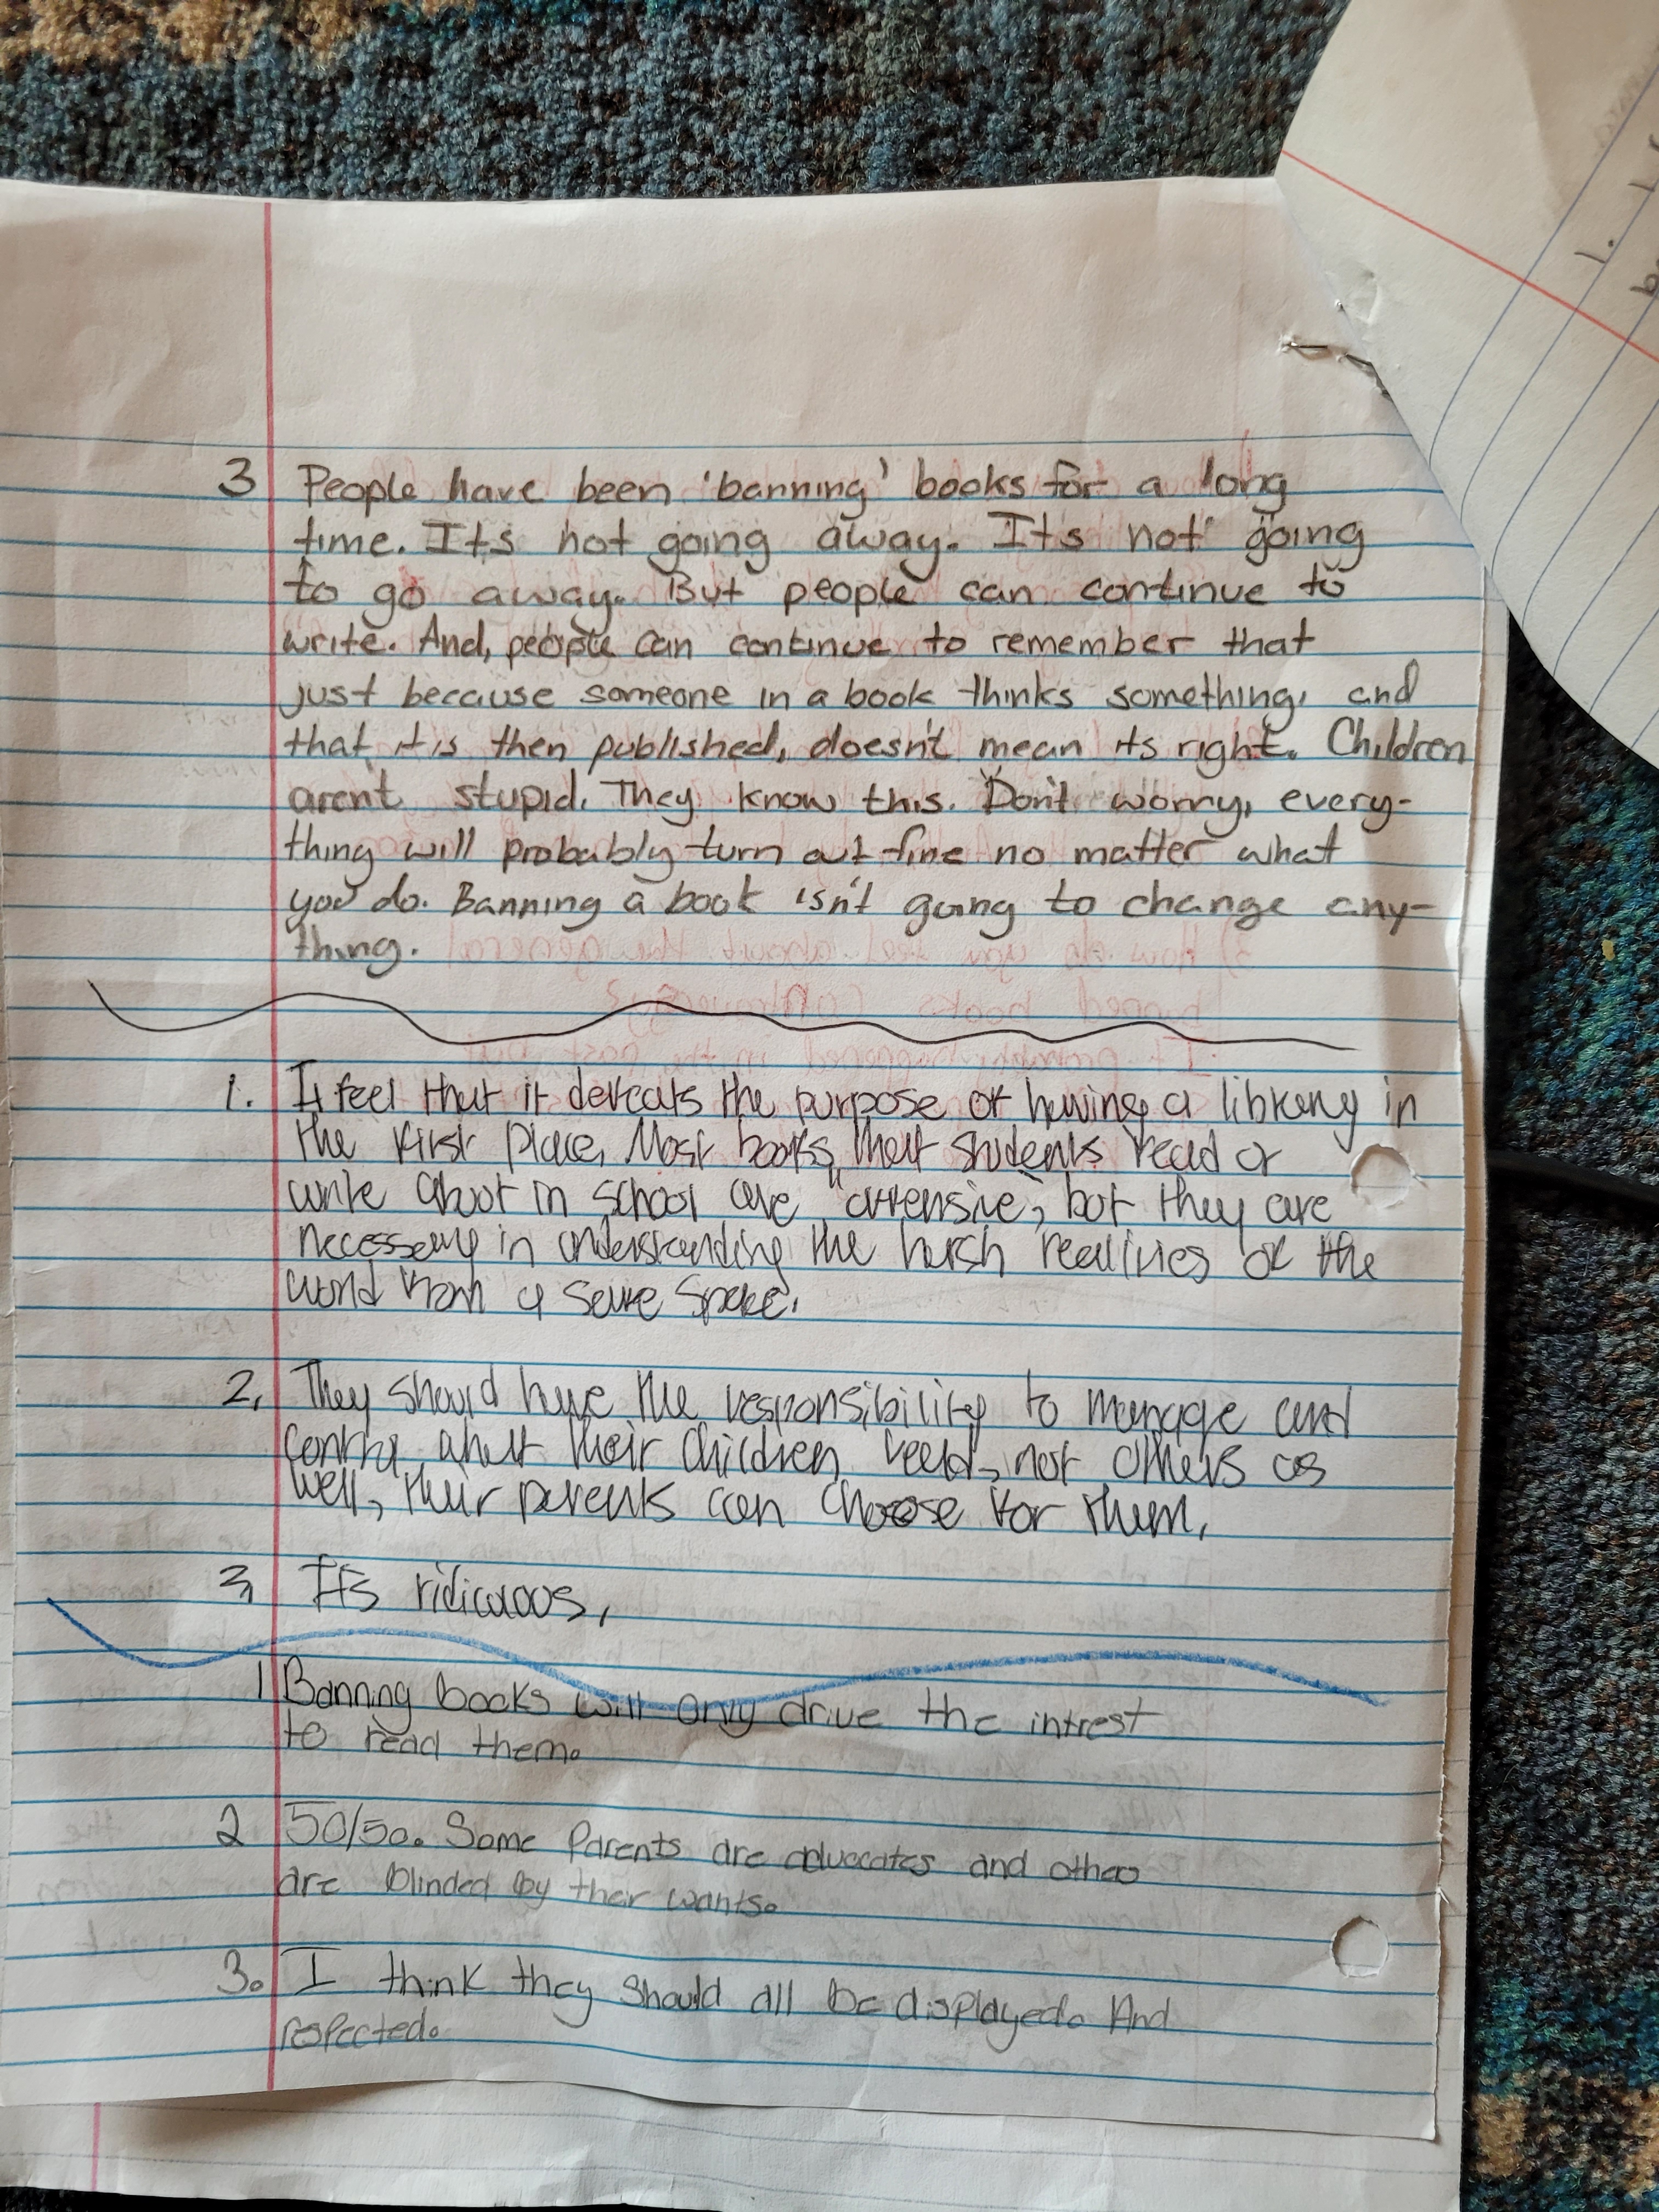 3 People have been 'banning' books for a long
time. Its not going away. Its not going
to go away. But people can continue to
write. And, people can continue to remember that
just because someone in a book thinks something, and
that it is then published, doesn't mean its right. Children
arent stupid. They know this. Don't worry, every-
thing will probably turn out fine no matter what
you do. Banning a book isn't going to change any-
thing.
1. I feel that it defeats the purpose of having a library in
the first place, Most books that students read or
write about in school are "offensive", but they are
necessary in understanding the harsh realities of the
world from a safe space.
2. They should have the responsibility to manage and
what their children read, not others as
well, their parents can choose for them.
3. It's
1 Banning books will only drive the intrest
to read them.
2 50/50. Some Parents are advocates and
are blinded by their wants.
3. I think they should all be displayed. And
respected.